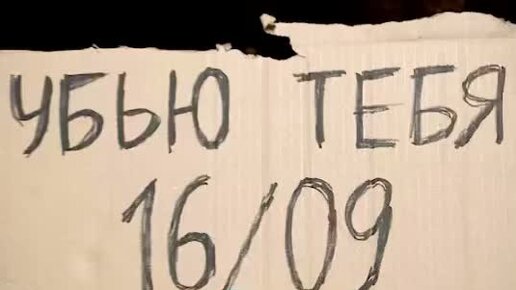 УБЬЮ ТЕБЯ
16/09